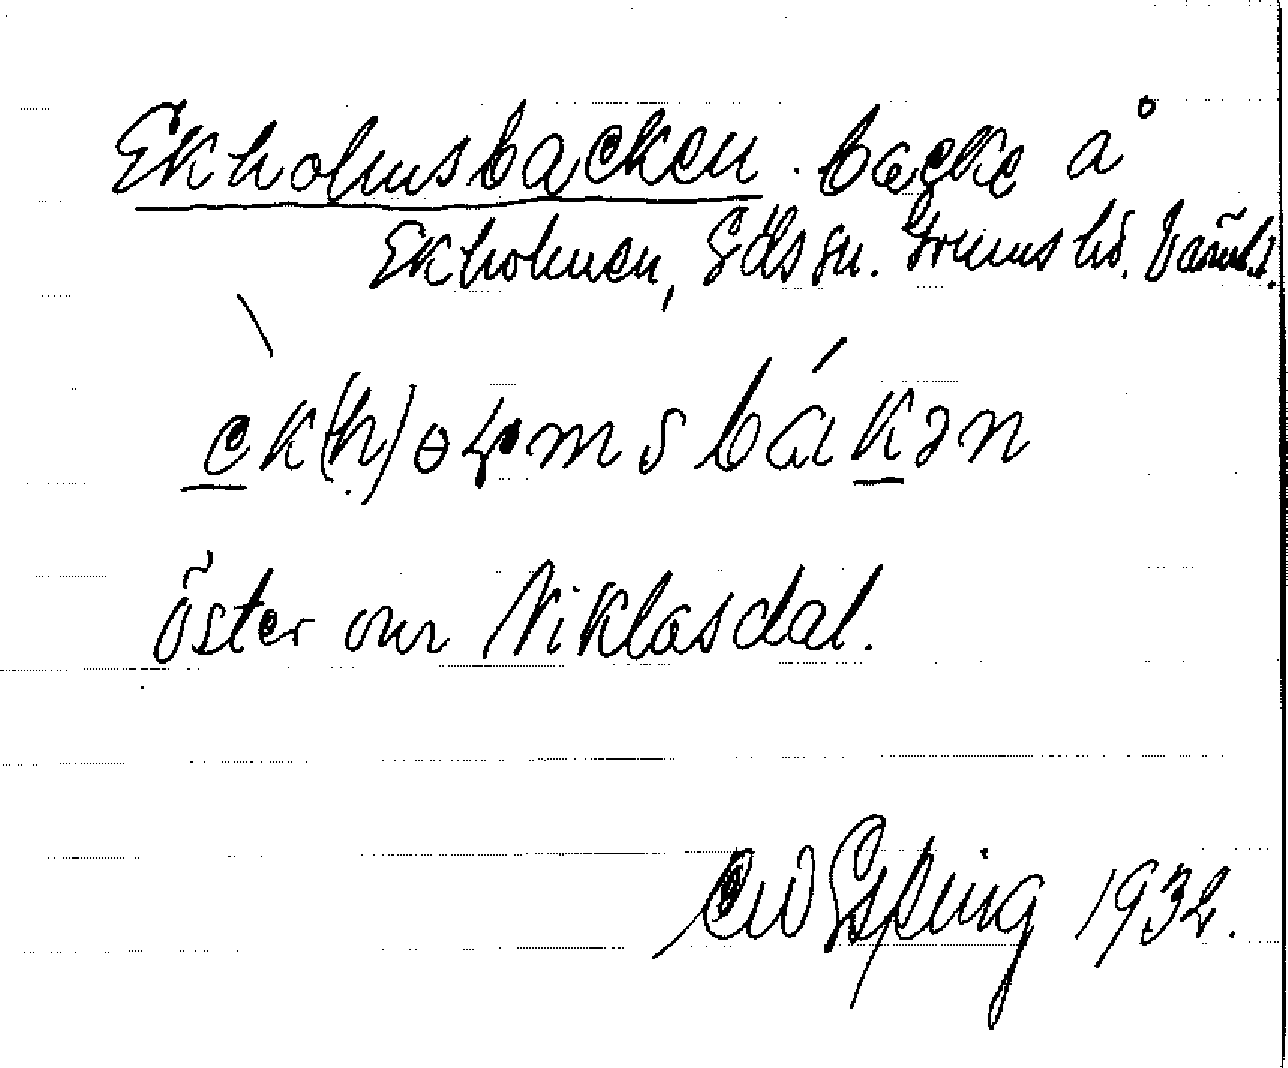 Ekholmsbacken. backe å
Ekholmen, Eds sn. Grums hd. Värml.
ek(h)ɵɽmsbákən
öster om Niklasdal.
Espling 1932.